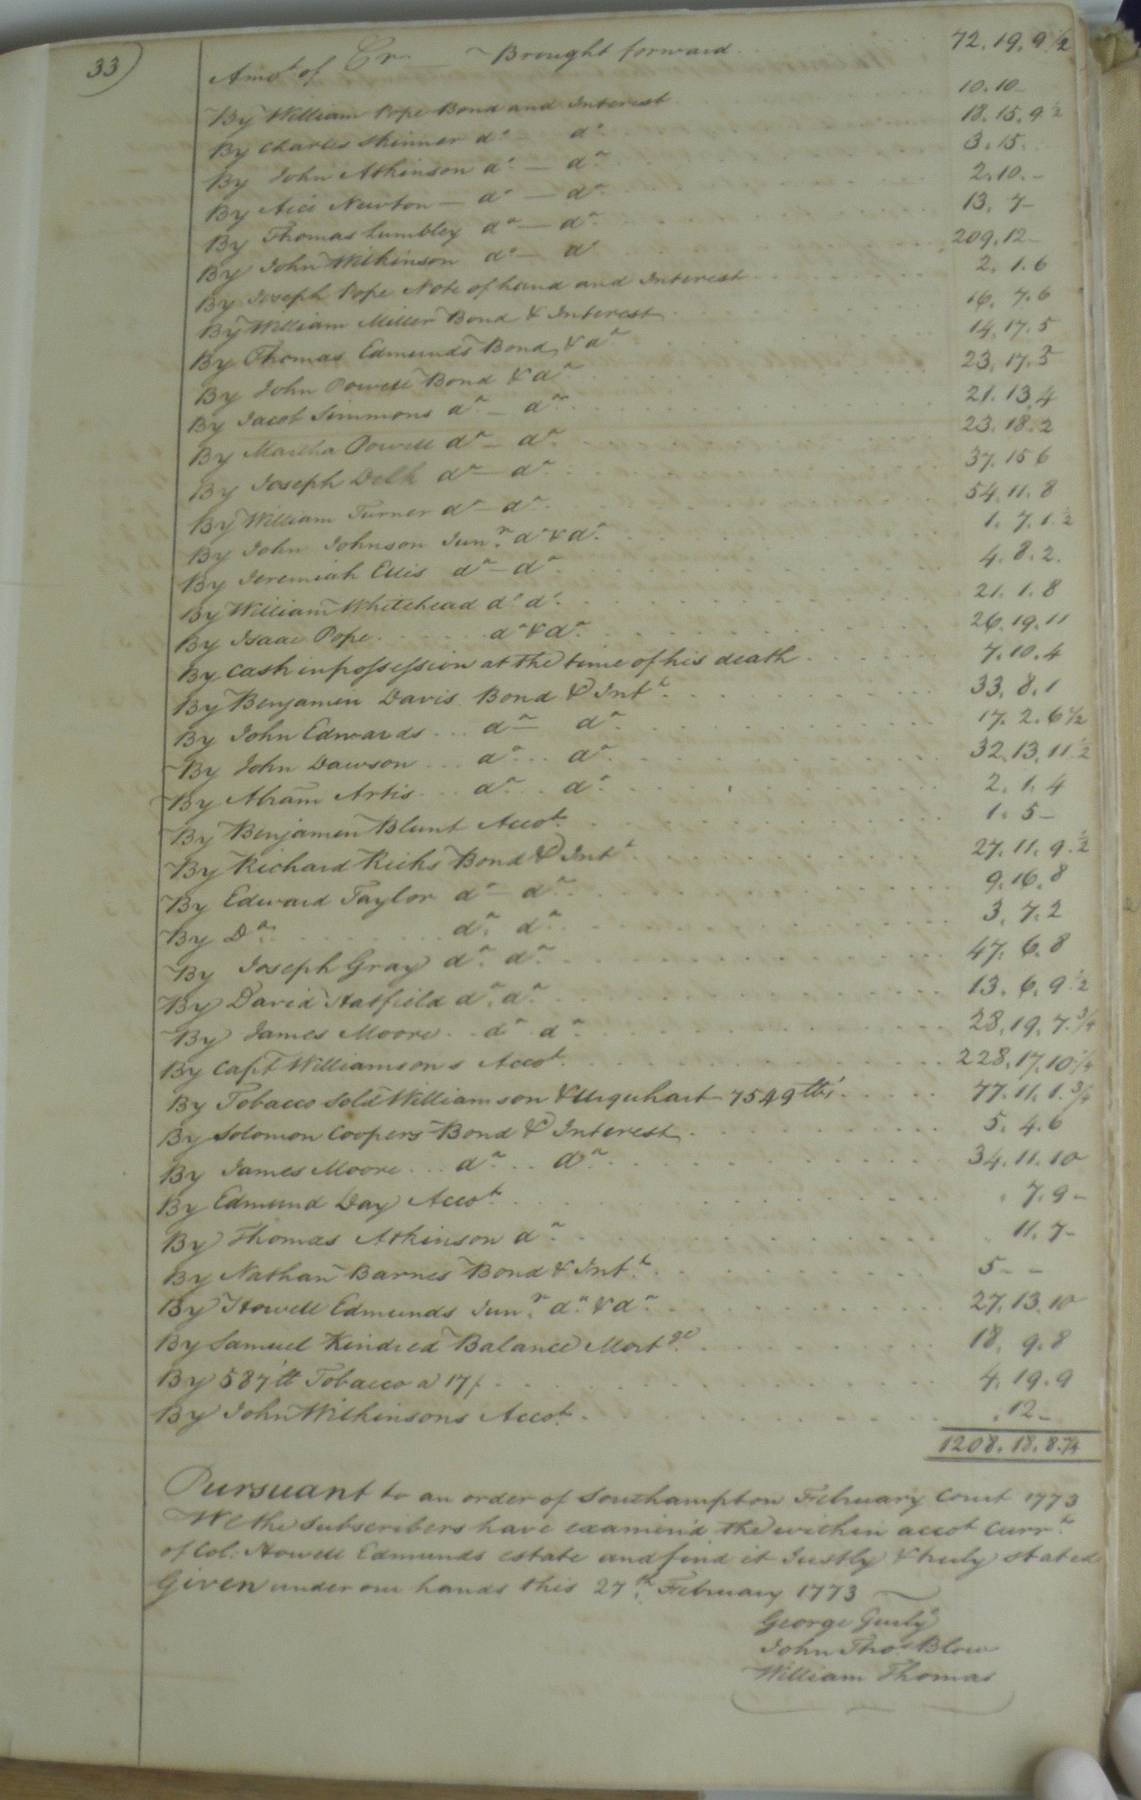 33)
Cr. Brought forward 72.19.9 1/2
Amot. of
By William Pope Bond and Interest 10.10-
By Charles Skinner do do 18.15.9 1/2
By John Atkinson do. - do. 3.15.
By Newton - do - do. 2.10.-
By Thomas Lumbley do - do. 13.7-
By John Wilkinson do - do 209.12-
By Joseph Pope Note of hand and Interest 2.1.6
By William Miller Bond & Interest 16.7.6
By Thomas Edmunds Bond & do 14.17.5
By John Powell Bond & do 23.17.5
By Jacob Simmons do - do. 21.13.4
By Martha Powell do - do. 23.18.2
By Joseph Delk do - do. 37.15 6
By William Turner do - do. 54.11.8
By John Johnson Junr. do & do. 1.7.1.1/2
By Jeremiah Ellis do - do. 4.8.2.
By William Whitehead do do. 21.1.8
By Isaac Pope. do & do. 26.19.11
By Cash in possession at the time of his death 7.10.4
By Benjamin Davis Bond & Intt. 33.8.1
By John Edwards do - do 17.2.6 1/2
By John Dawson do. do. 32.13.11.1/2
By Abram Artis do. do. 2.1.4
By Benjamin Blunt Accot. 1.5-
By Richard Ricks Bond & Intt 27.11.9.1/2
By Edward Taylor do - do. 9.16.8
By Do. do. do. 3.7.2
By Joseph Gray do. do. 47.6.8
By David Hatfield do. do. 13.6.9.1/2
By James Moore do do. 28.19.7.3/4
By Capt Williamsons Accot. 228.17.10
By Tobacco sold Williamson & Urquhart 7549 lbs. 77.11.1.3/4
By Solomon Coopers Bond & Interest 5.4.6
By James Moore do. do. 34.11.10
By Edmund Day Accot. .7.9-
By Thomas Atkinson do. 11.7-
By Nathan Barnes Bond & Intt. 5--
By Howell Edmunds Junr. do. & do. 27.13.10
By Samuel Kindred Balance Mortge. 18.9.8
By 587 lb Tobacco a 17/. 4.19.9
By John Wilkinsons Accot. .12-
1208.18.8.
Pursuant to an order of Southampton February Court 1773
We the Subscribers have examin'd the within accot Currt.
of Col. Howell Edmunds estate and find it Justly & truly stated
Given under our hands this 27th. February 1773
George Gurly
John Thos. Blow
William Thomas